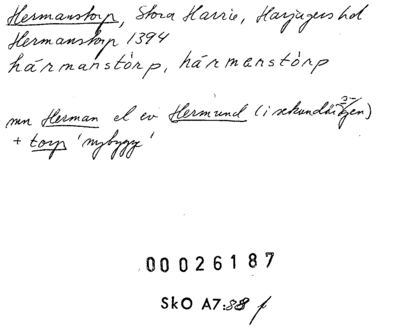 Hermanstorp, Stora Harrie, Harjagers hd
Hermanstorp 1394
hármanstòrp, hármanstòrp
mn Herman el ev Hermund (i sekundär
+ torp 'nybygge'
00026187
SkO A7:88